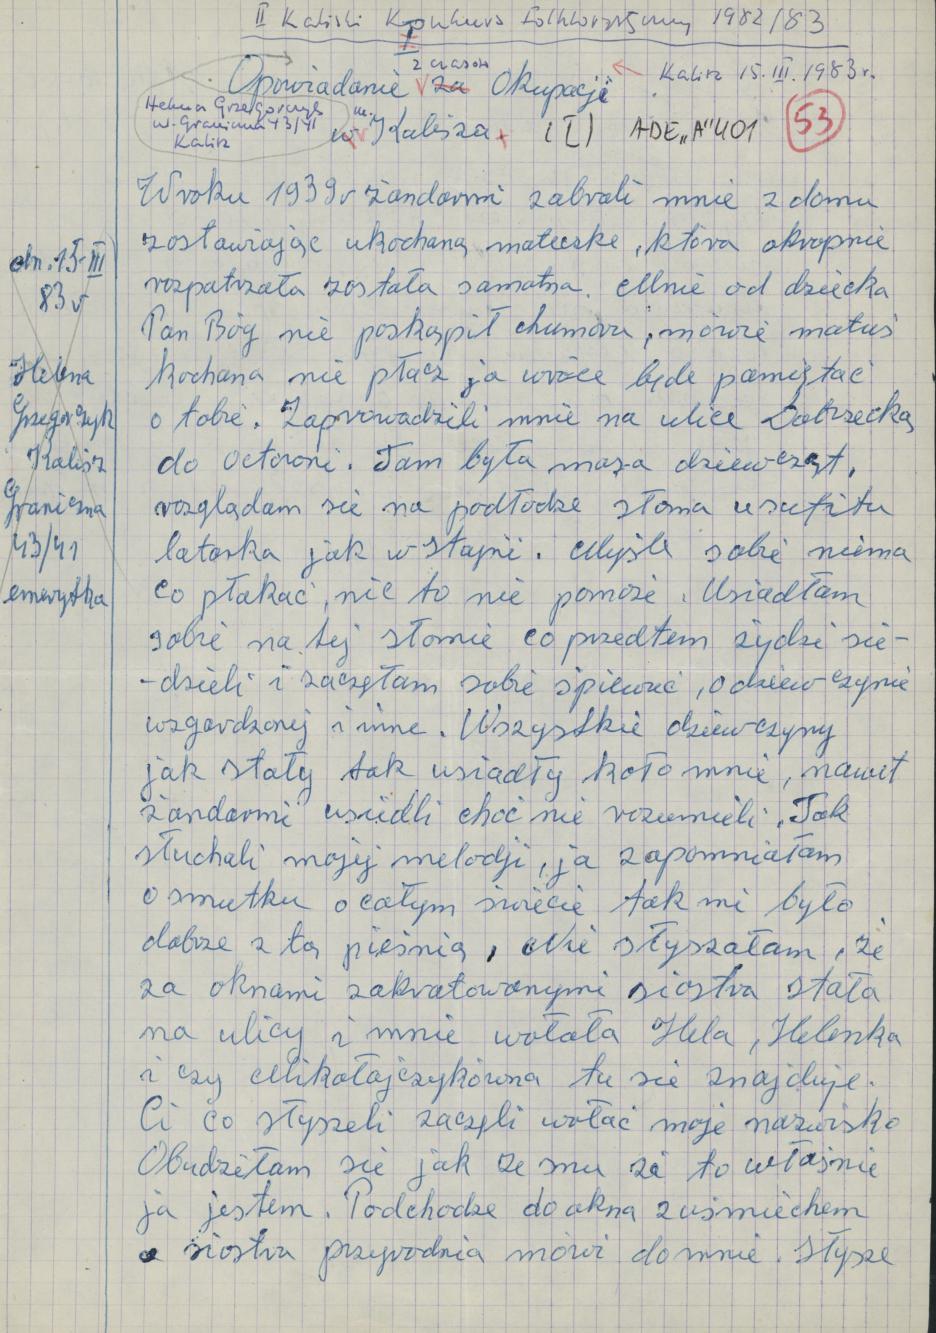 II Kaliski Konkurs folklorystyczny 1982/83
I
z czasów
Opowiadanie za Okupacji
Kalisz 15.III.1983r.
Helena Grzegorczyk
w. Graniczna 43/41
Kalisz
w Kalisza
(I) ADE„A"401
53
W roku 1939r żandarmi zabrali mnie z domu
zostawiając ukochaną mateczke, która okropnie
rozpatrzała została samotna. Mnie od dziecka
Pan Bóg nie poskąpił chumoru, mówie matuś
kochana nie płacz ja wróce będe pamiętać
o tobie. Zaprowadzili mnie na ulice Dobrzecką
do Octorni. Tam była masa dziewcząt,
rozglądam sie na podłodze słoma u sufitu
latarka jak w stajni. Myśle sobie niema
co płakać, nic to nie pomoże. Usiadłam
sobie na tej słomie co przedtem żydzi sie-
-dzieli i zaczęłam sobie śpiewać, o dziewczynie
wzgardzonej i inne. Wszystkie dziewczyny
jak stały tak usiadły koło mnie, nawet
żandarmi usiedli choć nie rozumieli. Tak
słuchali mojej melodji, ja zapomniałam
o smutku o całym świecie tak mi było
dobrze z tą pieśnią, Nie słyszałam, że
za oknami zakratowanymi siostra stała
na ulicy i mnie wołała Hela, Helenka
i czy Mikołajczykówna tu sie znajduje.
Ci co słyszeli zaczęli wołać moje nazwisko
Obudziłam sie jak ze snu że to właśnie
ja jestem. Podchodze do okna z uśmiechem
a siostra przyrodnia mówi do mnie. Słysze
dn. 15-III
83r
Helena
Grzegorczyk
Kalisz
Graniczna
43/41
emerytka